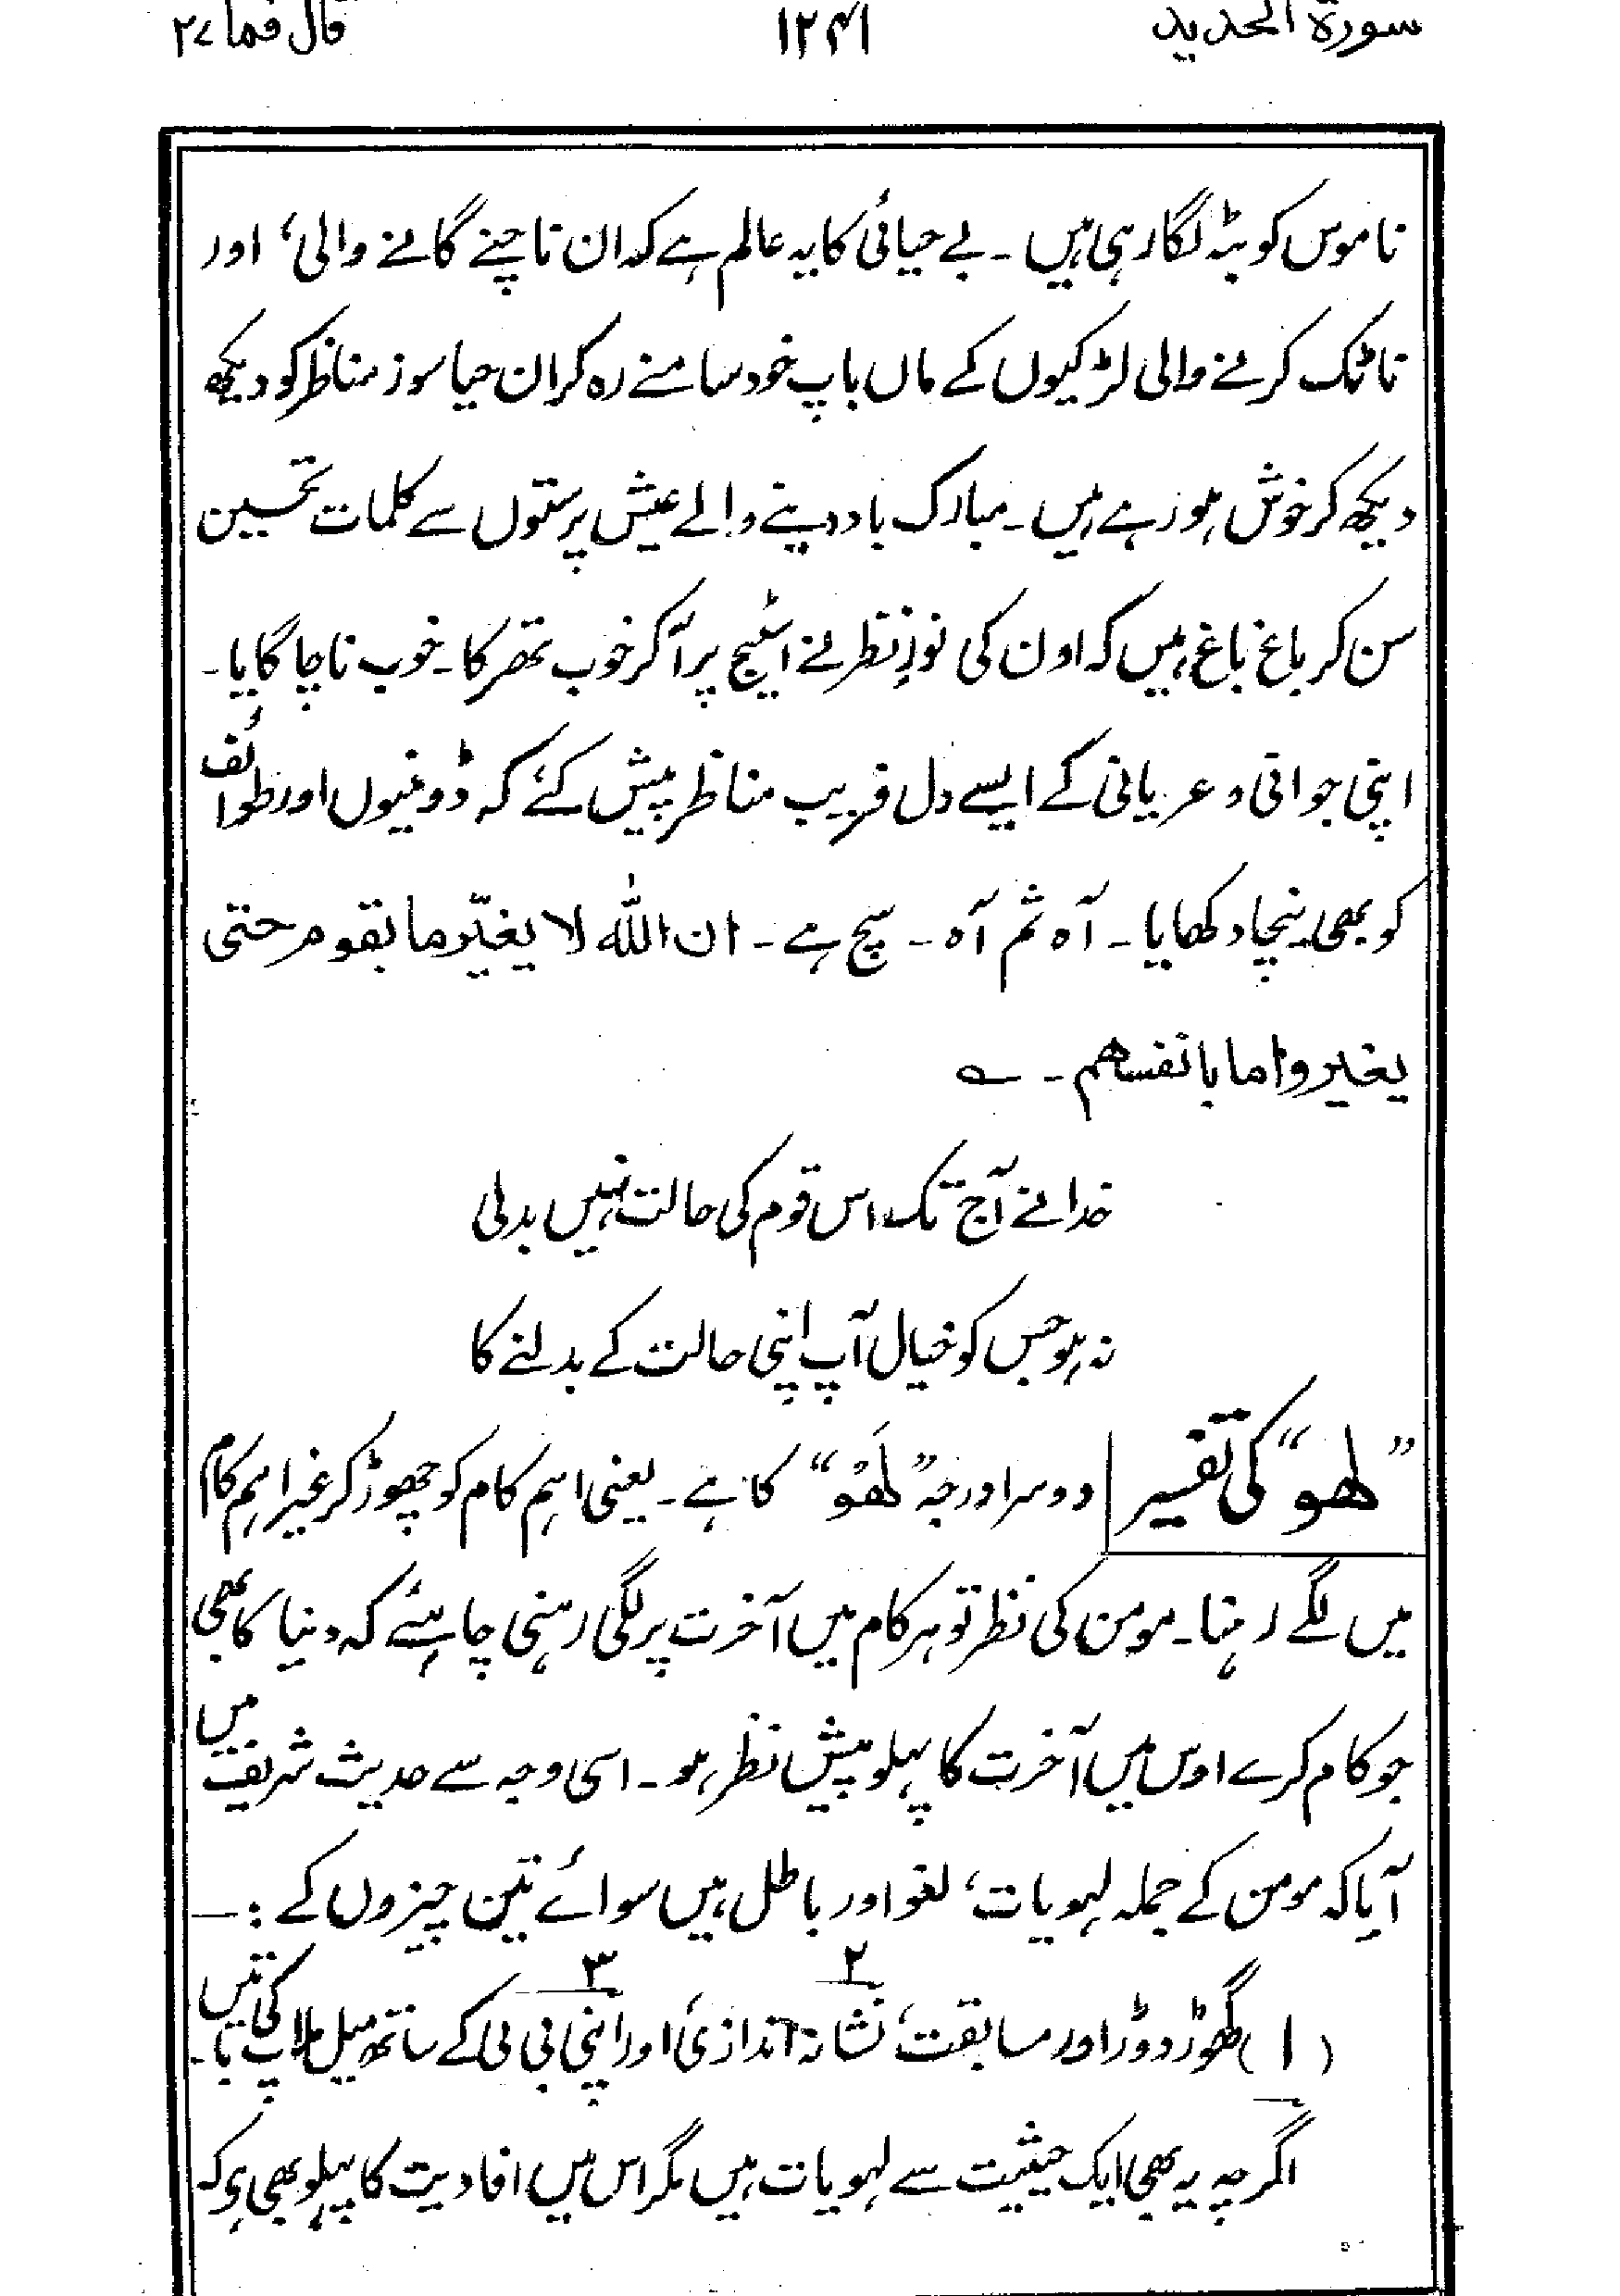 سورة الحدید ۱۲۴۱ قال فما ۲۷
ناموس کو بٹہ لگا رہی ہیں ۔ بے حیائی کا یہ عالم ہے کہ ان ناچنے گانے والی، اور
ناٹک کرنے والی لڑکیوں کے ماں باپ خود سامنے رہ کر ان حیا سوز مناظر کو دیکھ
دیکھ کر خوش ہو رہے ہیں ۔ مبارک باد دینے والے عیش پرستوں سے کلمات تحسین
سن کر باغ باغ ہیں کہ اون کی نورِ نظر نے اسٹیج پر آ کر خوب تھرکا ۔ خوب ناچا گایا ۔
اپنی جوانی و عریانی کے ایسے دل فریب مناظر پیش کئے کہ ڈومنیوں اور طوائف
کو بھی نیچا دکھایا ۔ آہ ثم آہ ۔ سچ ہے ۔ ان اللہ لا یغیّر ما بقوم حتی
یغیروا ما بانفسھم ۔ ؎
خدا نے آج تک اس قوم کی حالت نہیں بدلی
نہ ہو جس کو خیال آپ اپنی حالت کے بدلنے کا
”لھو“ کی تفسیر دوسرا درجہ ”لَھْو“ کا ہے ۔ یعنی اہم کام کو چھوڑ کر غیر اہم کام
میں لگے رہنا ۔ مومن کی نظر تو ہر کام میں آخرت پر لگی رہنی چاہیئے کہ دنیا کا بھی
جو کام کرے اوس میں آخرت کا پہلو پیش نظر ہو ۔ اسی وجہ سے حدیث شریف میں
آیا کہ مومن کے جملہ لہویات، لغو اور باطل ہیں سوائے تین چیزوں کے :۔
(۱) گھوڑ دوڑ اور مسابقت، ۲ نشانہ اندازی، ۳ اور اپنی بی بی کے ساتھ میل ملاپ کی باتیں ۔
اگرچہ یہ بھی ایک حیثیت سے لہویات ہیں مگر اس میں افادیت کا پہلو بھی ہی کہ